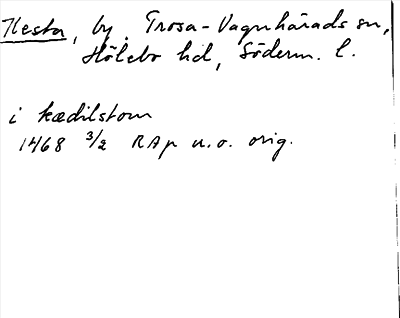 Kesta, by. Trosa-Vagnhärads sn,
Hölebo hd, Söderm. l.
i kædilstom
1468 3/2 RAp u.o. orig.